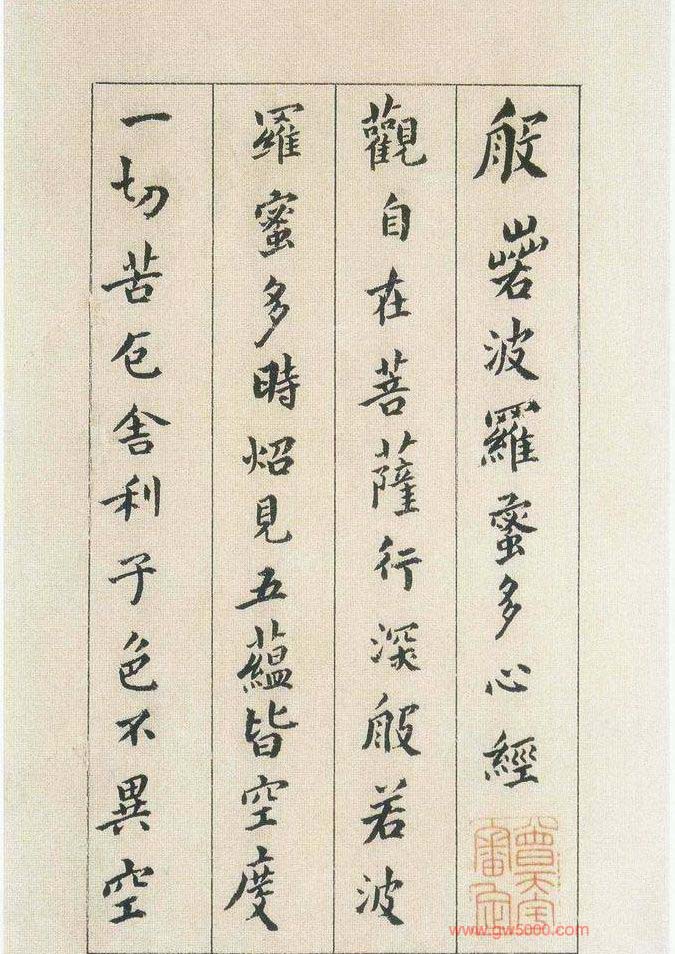 般若波羅蜜多心經
觀自在菩薩行深般若波
羅蜜多時炤見五蘊皆空度
一切苦厄舍利子色不異空
www.gw5000.com